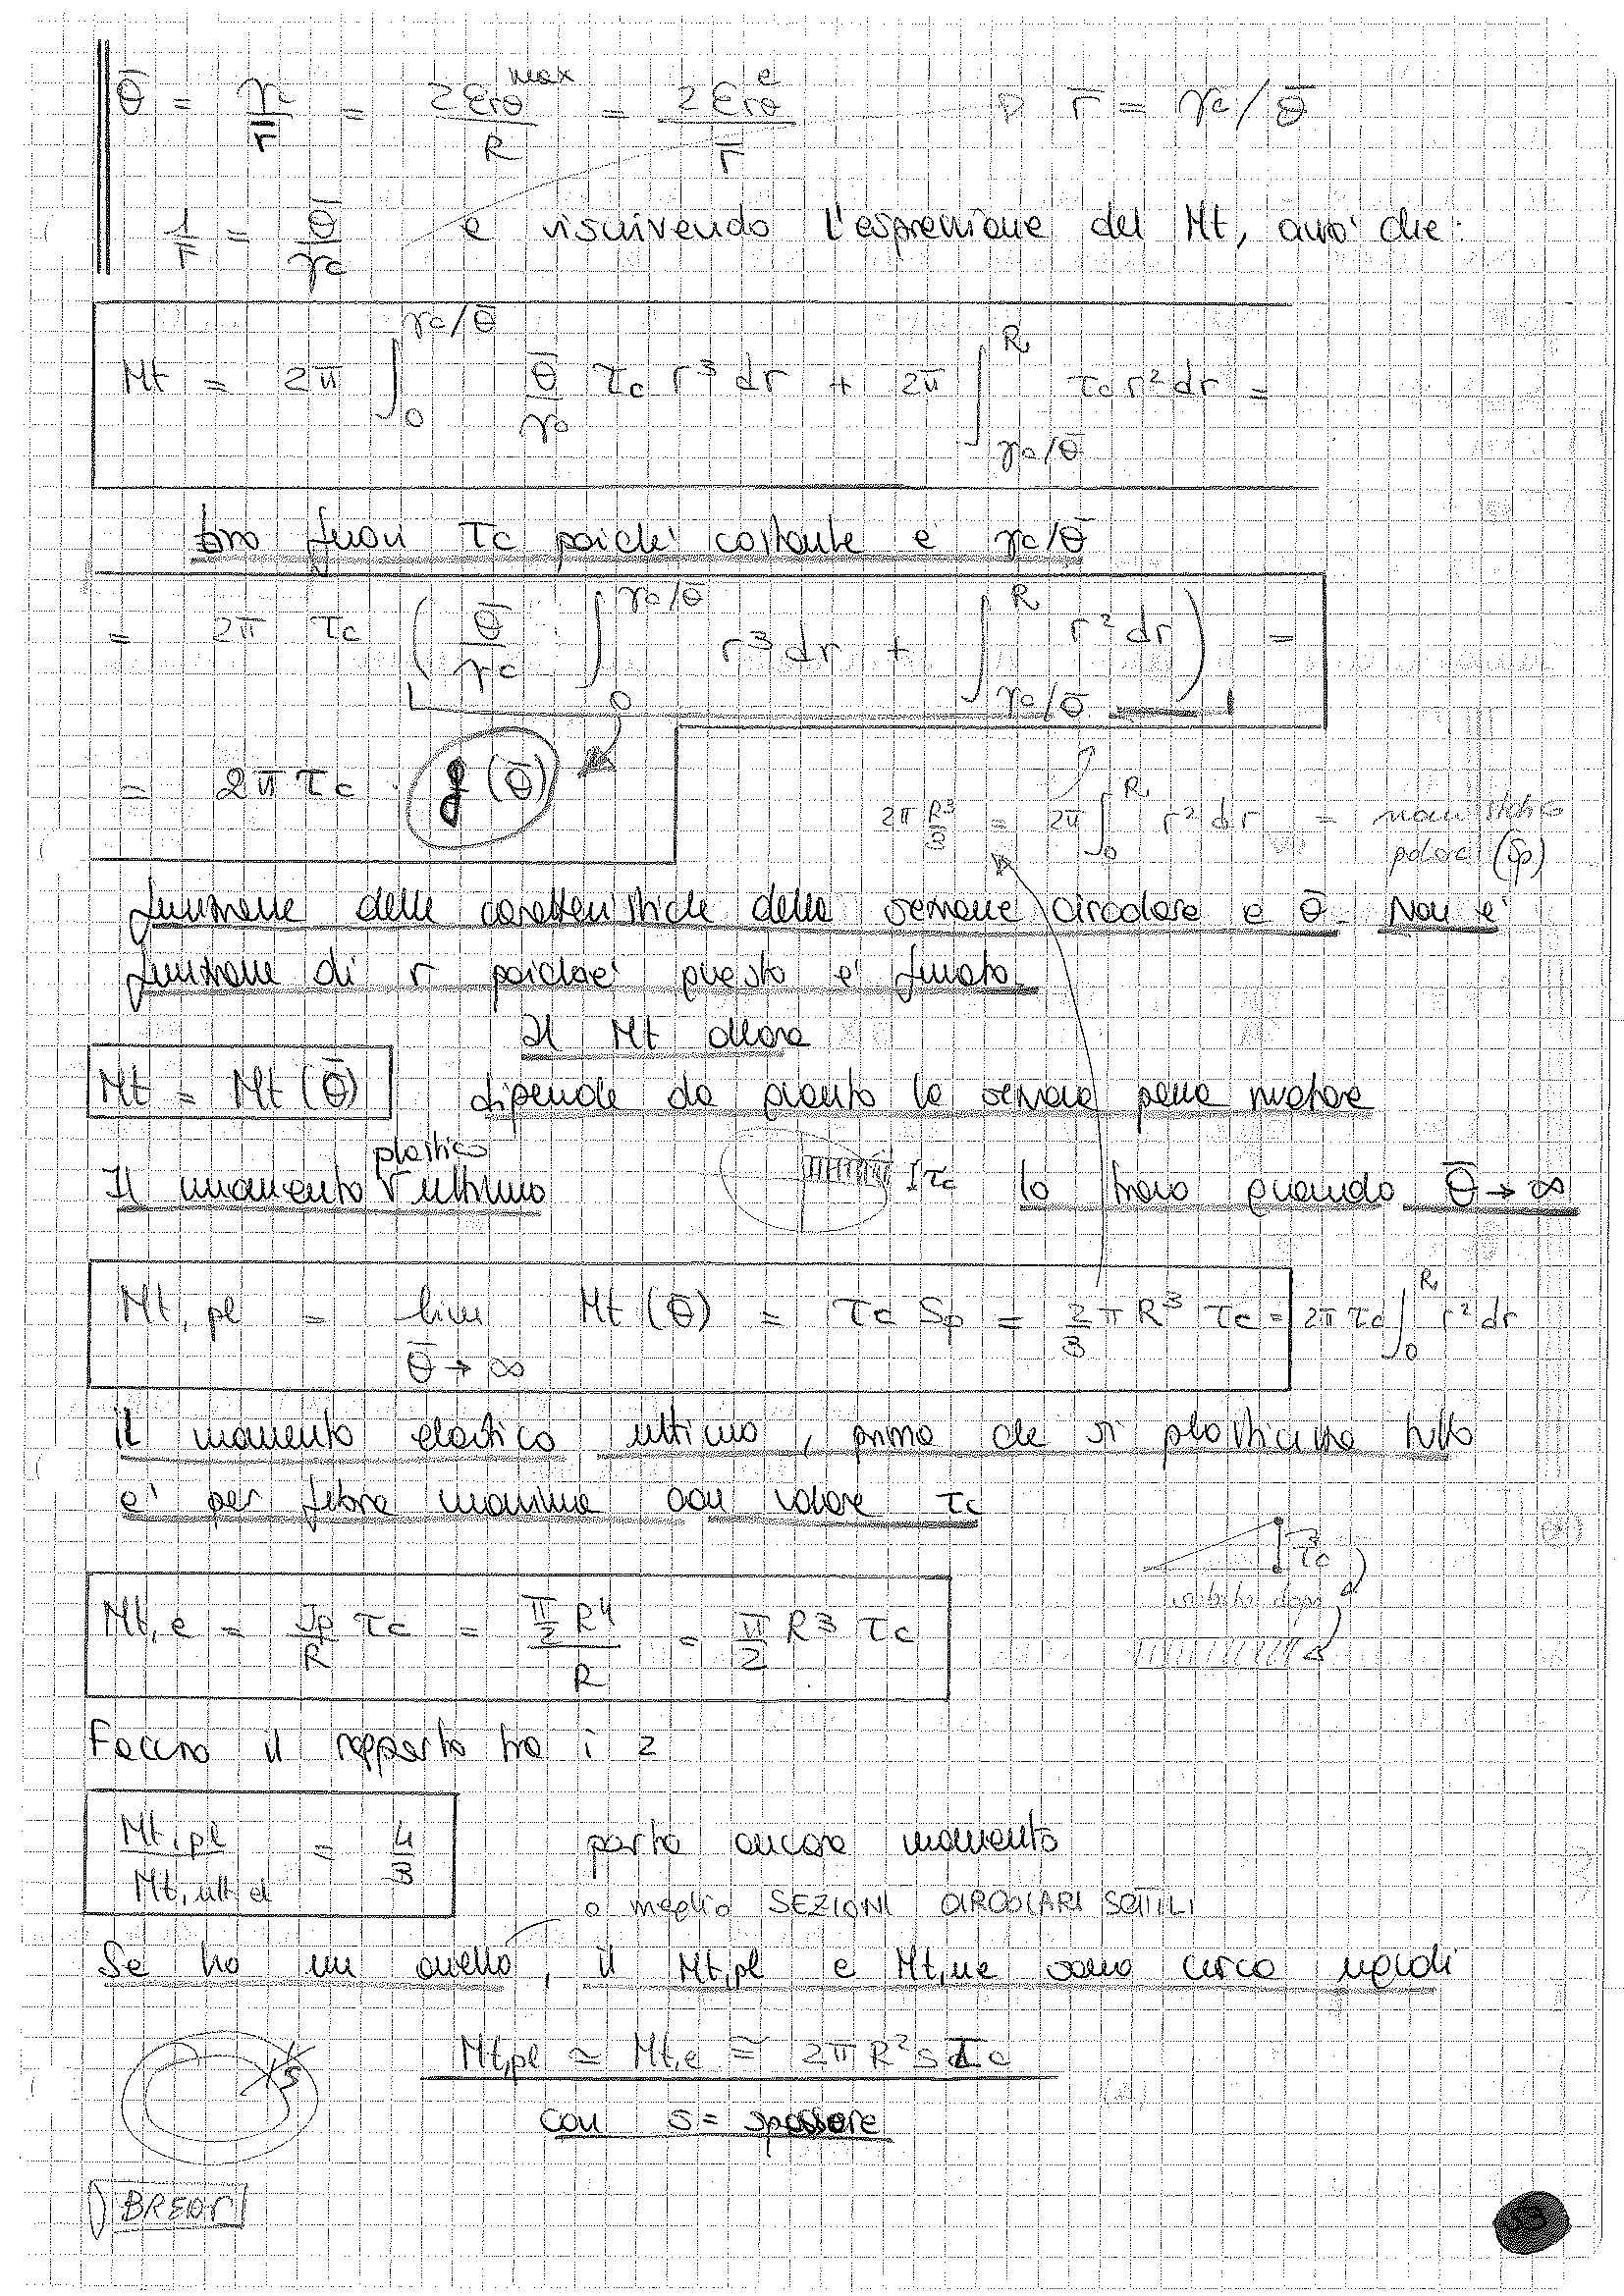 θ̄ = γc/r̄ = 2εrθ^max/R = 2εrθ^e/r̄ ⇒ r̄ = γc/θ̄
1/r̄ = θ̄/γc e riscrivendo l'espressione del Mt, avrò che:
Mt = 2π ∫₀^(γc/θ̄) θ̄/γc τc r³ dr + 2π ∫_(γc/θ̄)^R τc r² dr =
tiro fuori τc poichè costante e γc/θ̄
= 2π τc ( θ̄/γc ∫₀^(γc/θ̄) r³ dr + ∫_(γc/θ̄)^R r² dr ) =
= 2π τc · f(θ̄)
2π R³/3 = 2π ∫₀^R r² dr = mom statico
polare (Sp)
funzione delle caratteristiche della sezione circolare e θ̄. Non è
funzione di r poichè questo è fissato.
Il Mt allora
Mt = Mt(θ̄) dipende da quanto la sezione
Il momento plastico ultimo τc lo trovo quando θ̄ → ∞
Mt,pl = lim θ̄→∞ Mt(θ̄) = τc Sp = 2/3 π R³ τc = 2π τc ∫₀^R r² dr
il momento elastico ultimo, prima che si plasticizza tutto
è per fibra massima con valore τc
τc
subito dopo
Mt,e = Jp/R τc = (π/2 R⁴)/R = π/2 R³ τc
Faccio il rapporto tra i 2
Mt,pl/Mt,ult el = 4/3 porta ancora momento
o meglio SEZIONI CIRCOLARI SOTTILI
Se ho un anello, il Mt,pl e Mt,ue sono circa uguali
s
Mt,pl ≃ Mt,e ≅ 2πR²s τc
con s = spessore
BREDT
53